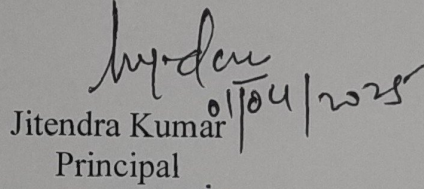 01/04/2025
Jitendra Kumar
Principal